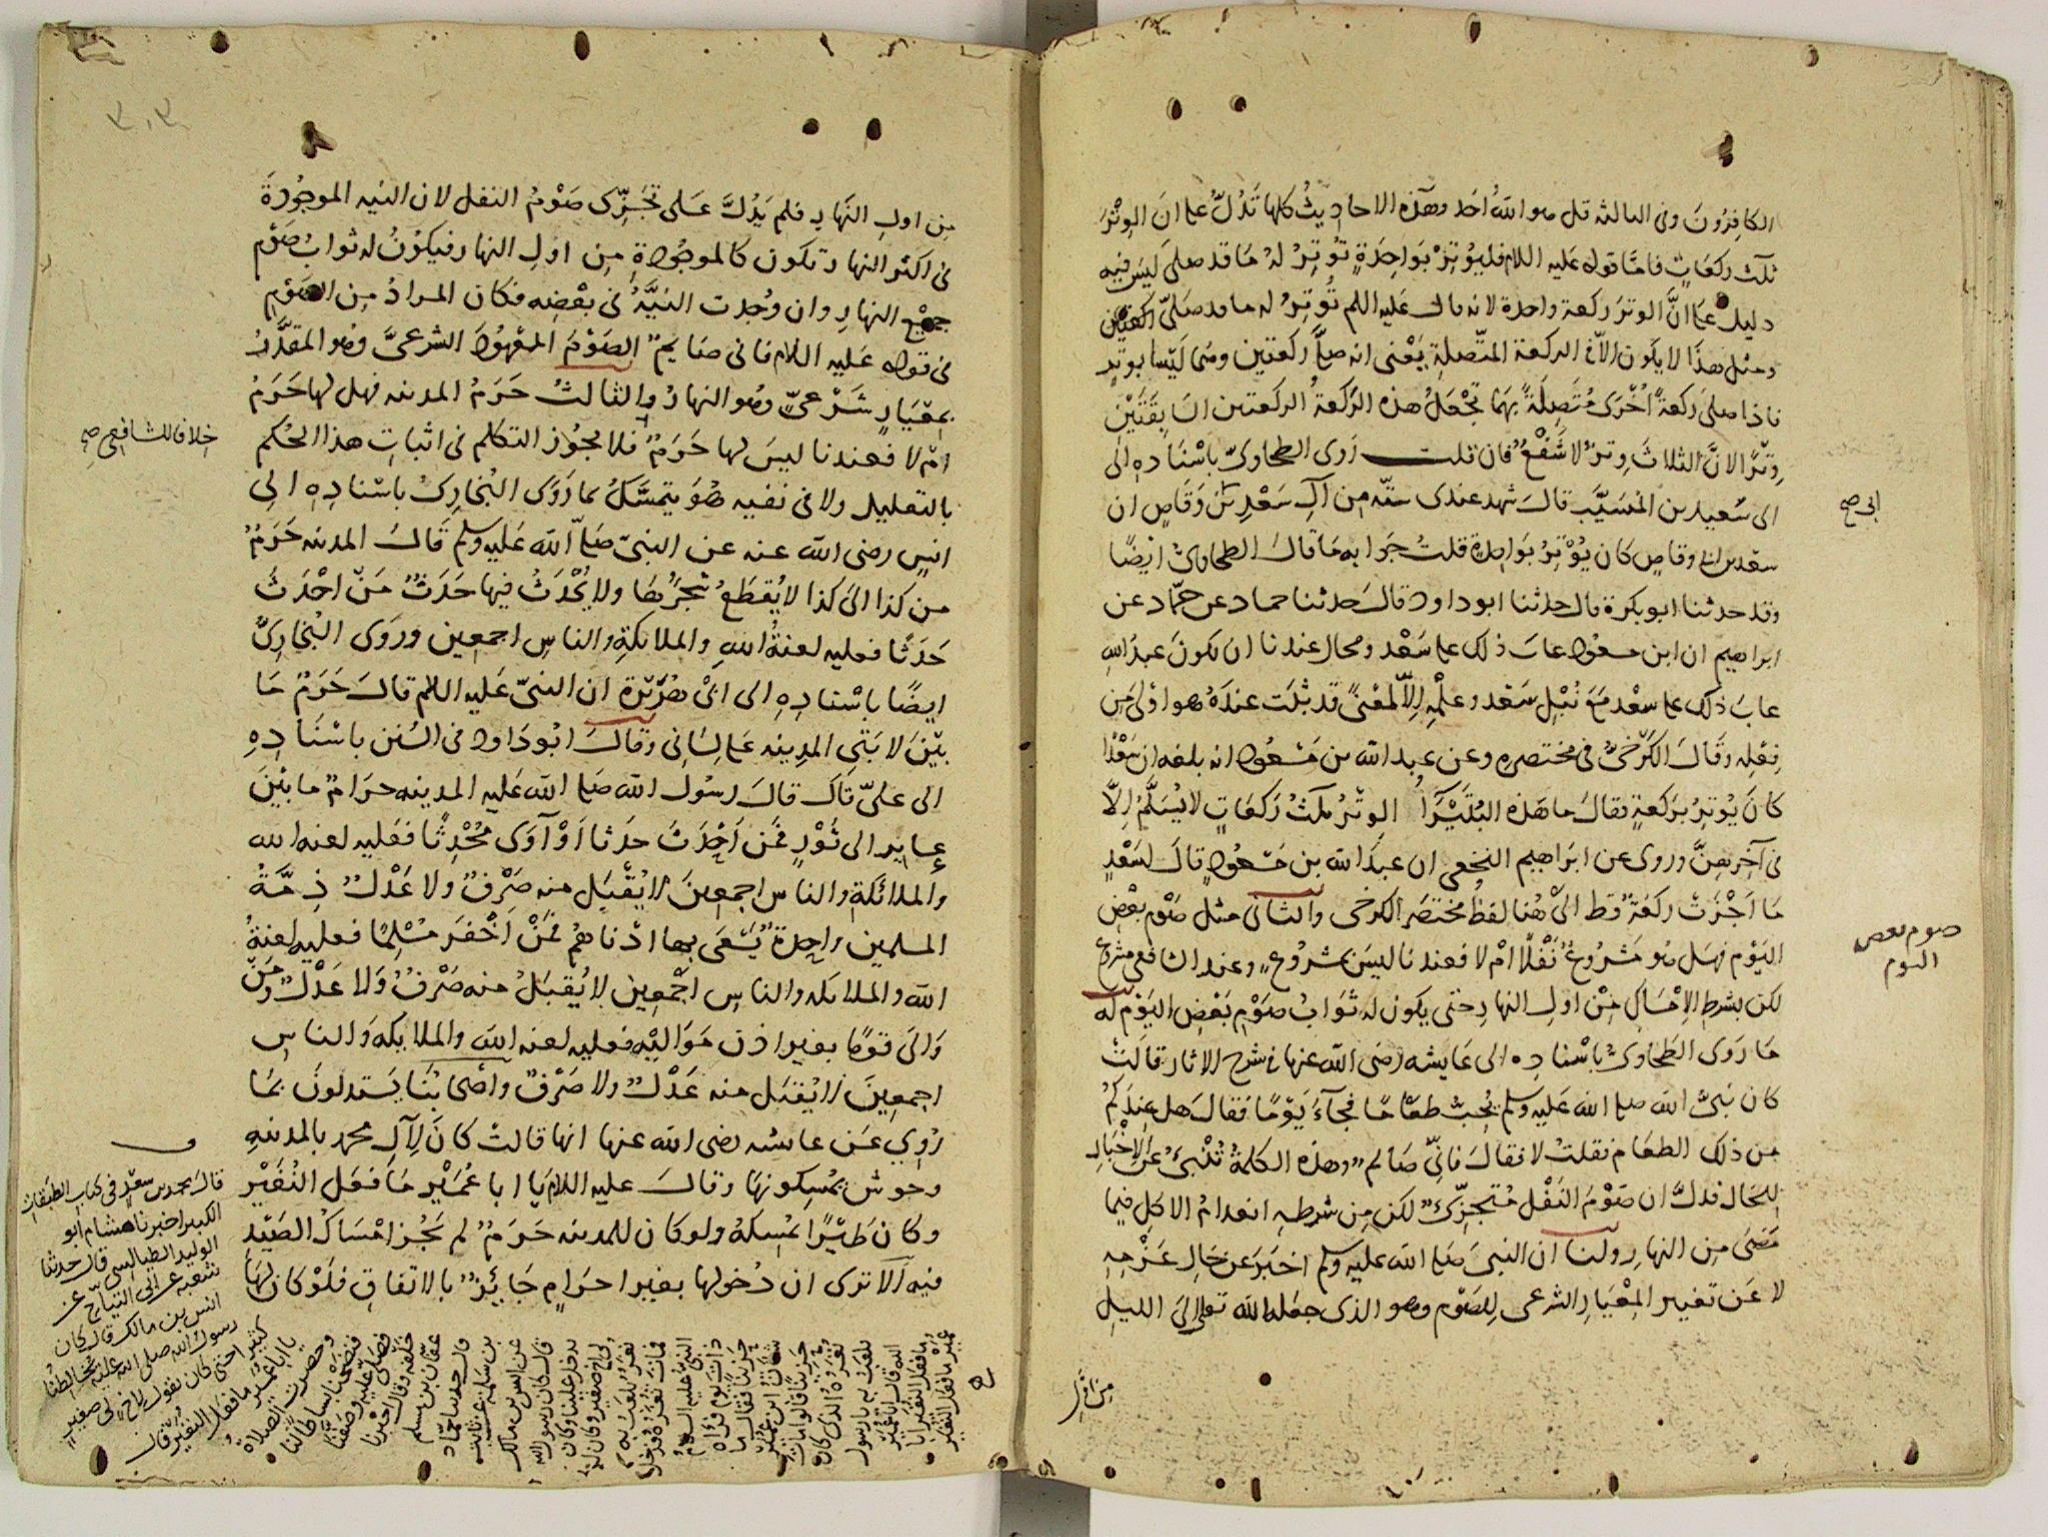 الكافِرُونَ وفى الثالثه قل هو اللهُ احَد وهَذه الاحادِيثُ كلها تَدُلُّ على انَ الوِتْرَ
ثلث ركعَاتٍ فامّا قوله عليه اللام فليُوتِرْ بوَاحِدَةٍ تُوتِرُ لهُ مَا قد صلى ليسَ فيه
دليل على انَّ الوترَ ركعة واحدة لانه قال عليه اللم تُوتِرُ له ما قد صَلىّ ركعتين
ومثل هذا لا يكون الاّ فى الركعة المتّصلة يَعْنى انه صلىَّ ركعتين وهُما ليسَا بوتر
فاذا صلىَ ركعةً اُخْرَى مُتَصِلَةً بهَا تجْعَلُ هذه الرَّكعَةُ الركعتين السَابِقَتَيْن
وِتْرًا لانَّ الثلاثَ وِترٌ لا شَفْعٌ فان قلت رَوَى الطحاوىّ باسْنَادِه الى
الى سَعِيد بن المسَيَّب قالَ شهد عندى ستّه مِن آلِ سَعْدِ بن وَقّاصٍ ان
سعد بن ابى وقاصٍ كان يُوْتِرُ بوَاحِدة قلتُ جَوابه مَا قالَ الطحاوىُ ايضًا
وقد حدثنا ابو بكرة قال حدثنا ابو داود قالَ حدثنا حماد عن حمّاد عن
ابراهيم ان ابن مسعود عابَ ذلك على سَعْد ومحال عندنا ان يكونَ عبدُ الله
عابَ ذلك على سعْد مَعَ نُبْل سَعْد وعِلْمِه اِلاّ لمعْنًى قد ثبْتَ عندَهُ هو اَوْلى مِن
فِعْلِه وقَالَ الكَرْخىُّ فى مختصره وعن عبد الله بن مَسْعُود انه بلغه ان سَعْدًا
كانَ يُوتِرُ بركعَةٍ فقالَ ما هَذه البُتَيْرَآءُ الوِتْرُ ثلثُ رَكعَاتٍ لا يُسَلَّمُ اِلاَّ
فى آخِرهِنَّ وروى عن ابرَاهِيم النخعى ان عبدَ الله بن مَسْعُودٍ قالَ لسَعْدٍ
مَا اَجْزَتْ ركعَةٌ قط الىْ هُنا لفظُ مختصَر الكرخى والثانى مثل صَوْم بعْضِ
اليَوْم فهَل هُو مَشْرُوعٌ نَفْلًا امْ لا فعندنا ليسَ بمشرُوعٍ وعند الشافعى مشروع
لكن بشرطِ الاِمْسَاكِ مِنْ اولِ النهارِ حتى يكون له ثوَابُ صَوْمِ بَعْضِ اليَوْم له
مَا رَوَى الطَحاوىُ باسْنادِه الى عَايشه رضى الله عنها فى شرح الاثار قالَتْ
كان نبىُّ الله صلى الله عليه وسلم يُحِبُّ طعَامًا فجآءَ يَوْمًا فقالَ هل عِندَكُم
مِن ذلك الطعَام فقلتُ لا فقالَ فانّى صَائم وهَذه الكلمةُ تُنْبِئُ عَن الاِخْبَارِ
لِلحَال فدلَّ ان صَوْمَ النَفْل مُتَجزِّئٌ لكن مِن شرطهِ انعدامُ الاكل فيما
مَضَى مِن النهارِ ولنا ان النبىَ صَلى الله عليه وسلم اخبَرَ عن حَالِ عَزْمِه
لا عَن تغيير المِعْيَار الشرعى لِلصَوْم وهو الذى جعَله الله تعالى الى الليل
ابى صح
صوم بعض
اليوم
مِن اوّلِ
مِن اولِ النَهارِ فلم يَدُلَّ عَلى تجَزِّى صَوْمُ النفل لان النيه الموجُودَةَ
فى اكثر النهارِ تكون كالموجُودة مِن اولِ النهار فيكوْنُ له ثوابُ صَوْم
جميع النهارِ وان وُجدت النيَّةُ فى بعْضِه فكان المرادُ مِن الصَوْمِ
فى قوله عَليه اللام فانى صَايمٌ الصَوْمَ المعْهُودَ الشرعىَّ وهُو المقدَّرُ
بمعْيَارٍ شَرْعىٍّ وهُو النهارُ والثالثُ حَرَمُ المدينه فهل لها حَرَمٌ
امْ لا فعندنا ليسَ لها حَرَمٌ فلا يجُوز التكلم فى اثباتِ هذا الحُكم
بالتعليل ولا فى نفيه هُوَ يتمسَّكُ بما رَوَى البُخارىُّ باسْنادِهِ الى
انسٍ رضى الله عنه عن النبىّ صَلىّ الله عَليه وسلم قَالَ المدينه حَرَمٌ
مِن كذا الىَ كذا لا يُقطَعُ شجَرُهَا ولا يُحْدَثُ فيها حَدَثٌ مَنْ احْدَثَ
حَدَثًا فعليه لعنةُ اللهِ والملائكةِ والناسِ اجمعين وروَى البُخارىَُّ
ايضًا باسْنادِهِ الى ابىْ هُرَيْرة ان النبىّ عَليه اللام قالَ حَرَمٌ مَا
بيْنَ لابَتَى المدِينه عَلى لِسَانى وقالَ ابُو دَاود فى السُنن باسْنَادِهِ
الى علىّ قالَ قالَ رسُولُ الله صَلى الله عَليه المدينه حرامٌ ما بيْنَ
عايرٍ الى ثَوْرٍ فمَن اَحْدَثَ حدَثا اَوْ آوَى مُحْدِثًا فعَليه لعنه الله
والملائكةِ والناس اجمعِينَ لا يُقْبَل منه صَرْفٌ ولا عَدْلٌ ذِمَّةُ
المسلمين واحِدةٌ يَسْعَى بها ادْناهُم فمَنْ اَخْفَرَ مُسْلِمًا فعليه لعنةُ
الله والملايكه والناسِ اجْمَعِين لا يُقبَلُ منه صَرْفٌ وَلا عَدْلٌ ومَنْ
وَالىَ قومًا بغير اذن مَوَاليْه فعليه لعنه الله والملايكه وَالناسِ
اجمعِينَ لا يُقبَل منه عَدْلٌ ولا صَرْفٌ واَصْحابُنَا يَستدلونَ بمَا
رُوِى عَن عايشه رضى الله عنها انها قالتْ كانَ لآلِ محمدٍ بالمدينهِ
وحوش يُمْسِكونهَا وقالَ عليه اللام يَا ابا عُمَيْر مَا فعَل النُغَيْر
وكانَ طَيْرًا يُمْسكهُ ولو كان للمدينه حَرَمٌ لم يَجُز امْسَاكُ الصَيْد
فيه الا ترى ان دُخولها بغير احرَامٍ جَايْزٌ بالاتفاقِ فلَوْ كان لهَا
خلافا للشافعى صح
قالَ محمد بن سعْدٍ فى كتاب الطبقات
الكبير اخبرنا هشام ابو
الوليد الطيالسى قال حدثنا
شعبه عن ابى التيّاح عن
انس بن مالك قال كان
رسولُ الله صلى الله عليه يخالطنا
كثيرا حتى كان يقول لاخٍ لى صغير
يا ابا عُمَيْر ما فعل النُغَيْر قال
وحضرت الصلاة
فنضحْنا بساطا لنا
فصَلىّ عليه وصَفّنا
خلْفه وقالَ اخبَرنا
عفّان بن مسلم
قال حدثنا حمّاد
بن سلمة عن ثابت
عن انس بن مالك
قال كان رسولُ الله
يدخل علينا وكان
لى اخ صغير وكان له
نُغَرٌ يلعَبُ به
فماتَ نُغَرُه فدخل
النبىّ عليه السلامُ
ذاتَ يوم فرَآه
حَزِينًا فقال ما
شأنُ ابى عُمَيْر
حَزِينًا قالوا ماتَ
نُغَرُه الذى كان
يلعَبُ به يا رسولَ
الله قال ابا عُمَيْر
ما فعل النُغَيْر ابا
عُمَيْر ما فعل النُغَيْر